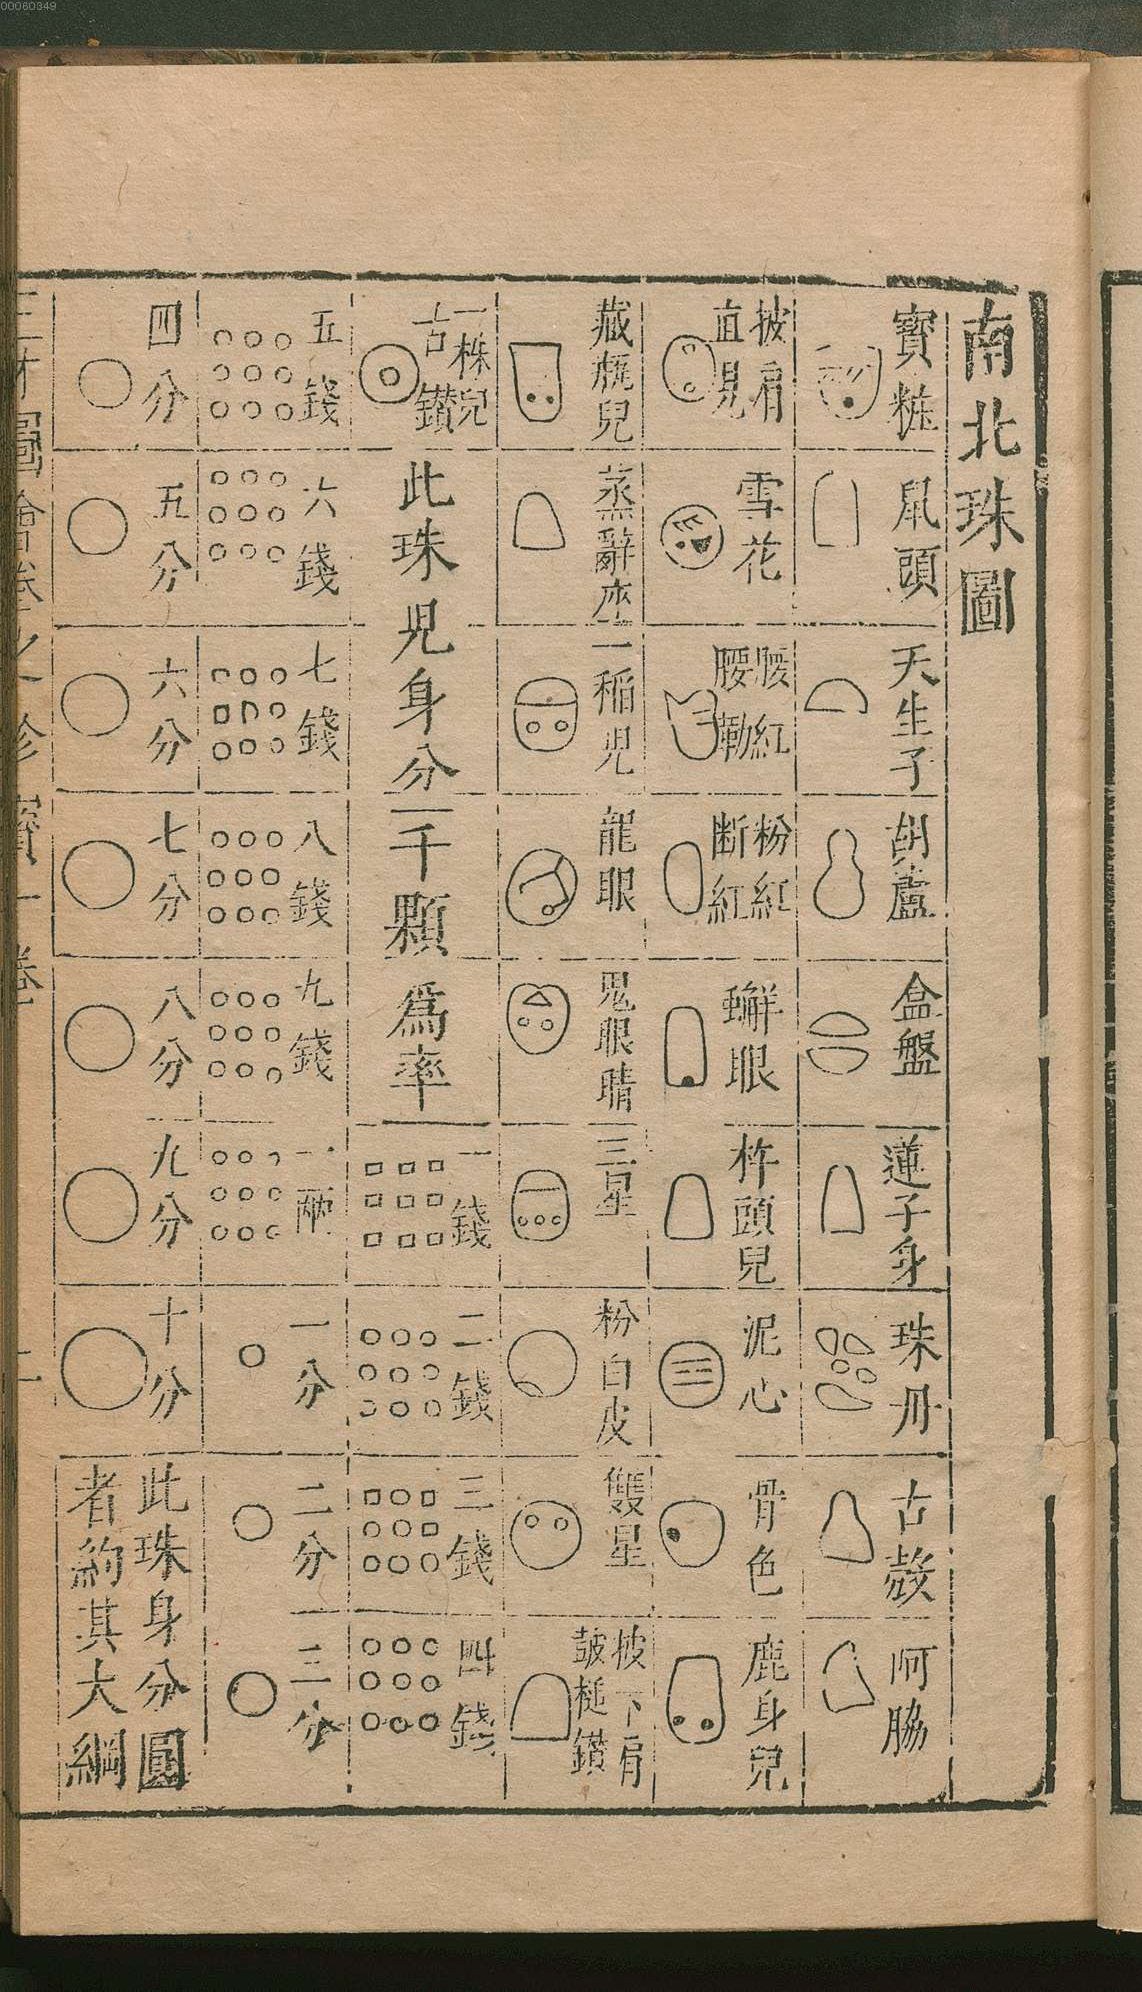 南北珠圖
寶糚
鼠頭
天生子
胡蘆
盒盤
蓮子身
珠冊
古㲉
呵脇
披肩
直見
雪花
腰紅
腰鞆
粉紅
断紅
蠏眼
杵頭兒
泥心
骨色
鹿身兒
藏瓶兒
蒸辭座
一稲児
龍眼
鬼眼睛
三星
粉白皮
雙星
披下肩
皷槌鑚
一株兒
古鑚
此珠児身分一千顆爲率
一錢
二錢
三錢
四錢
五錢
六錢
七錢
八錢
九錢
一兩
一分
二分
三分
四分
五分
六分
七分
八分
九分
十分
此珠身分圓
者約其大綱
三才圖會
珍寳一卷
二
00060349